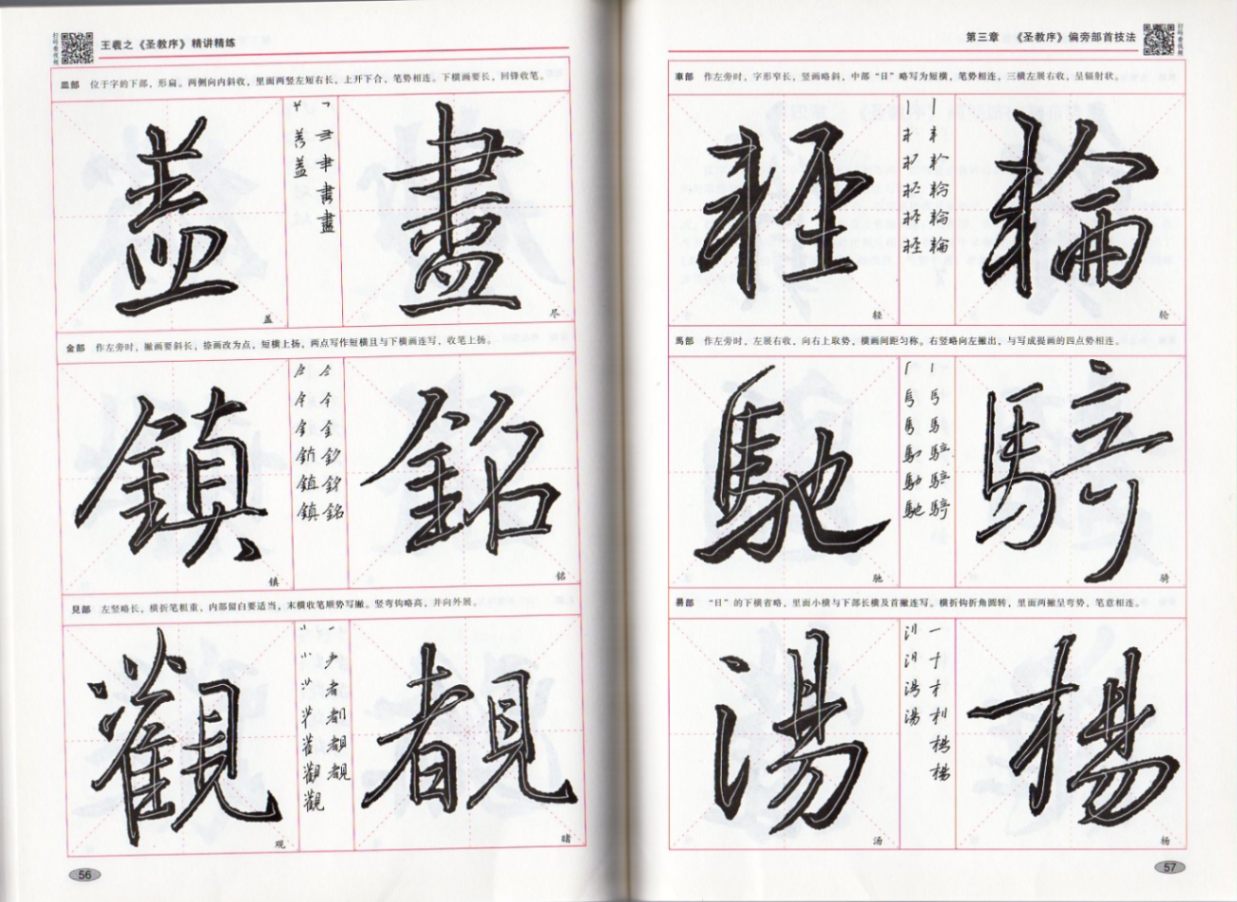 王羲之《圣教序》精讲精练
扫码看视频
皿部 位于字的下部，形扁。两侧向内斜收，里面两竖左短右长，上开下合，笔势相连。下横画要长，回锋收笔。
盖 盡
盖 尽
金部 作左旁时，撇画要斜长，捺画改为点，短横上扬，两点写作短横且与下横画连写，收笔上扬。
鎮 銘
镇 铭
見部 左竖略长，横折笔粗重，内部留白要适当，末横收笔顺势写撇。竖弯钩略高，并向外展。
觀 覩
观 睹
56
第三章 《圣教序》偏旁部首技法
扫码看视频
車部 作左旁时，字形窄长，竖画略斜，中部“日”略写为短横，笔势相连，三横左展右收，呈辐射状。
輕 輪
轻 轮
馬部 作左旁时，左展右收，向右上取势，横画间距匀称。右竖略向左撇出，与写成提画的四点势相连。
馳 騎
驰 骑
昜部 “日”的下横省略，里面小横与下部长横及首撇连写。横折钩折角圆转，里面两撇呈弯势，笔意相连。
湯 楊
汤 杨
57